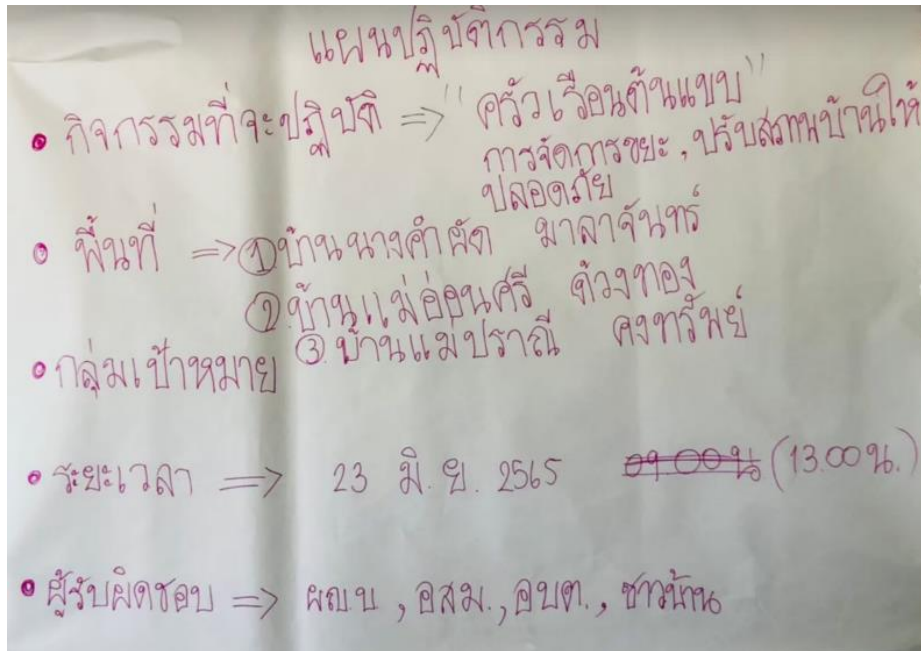 แผนปฏิบัติกรรม
• กิจกรรมที่จะปฏิบัติ => "ครัวเรือนต้นแบบ"
การจัดการขยะ, ปรับสภาพบ้านให้
ปลอดภัย
• พื้นที่ => ① บ้านนางคำผัด มาลาจันทร์
② บ้านแม่อ่อนศรี ด้วงทอง
③ บ้านแม่ปราณี คงทรัพย์
• กลุ่มเป้าหมาย
• ระยะเวลา => 23 มิ.ย. 2565 09.00 น (13.00 น.)
• ผู้รับผิดชอบ => ผญ.บ , อสม., อบต., ชาวบ้าน